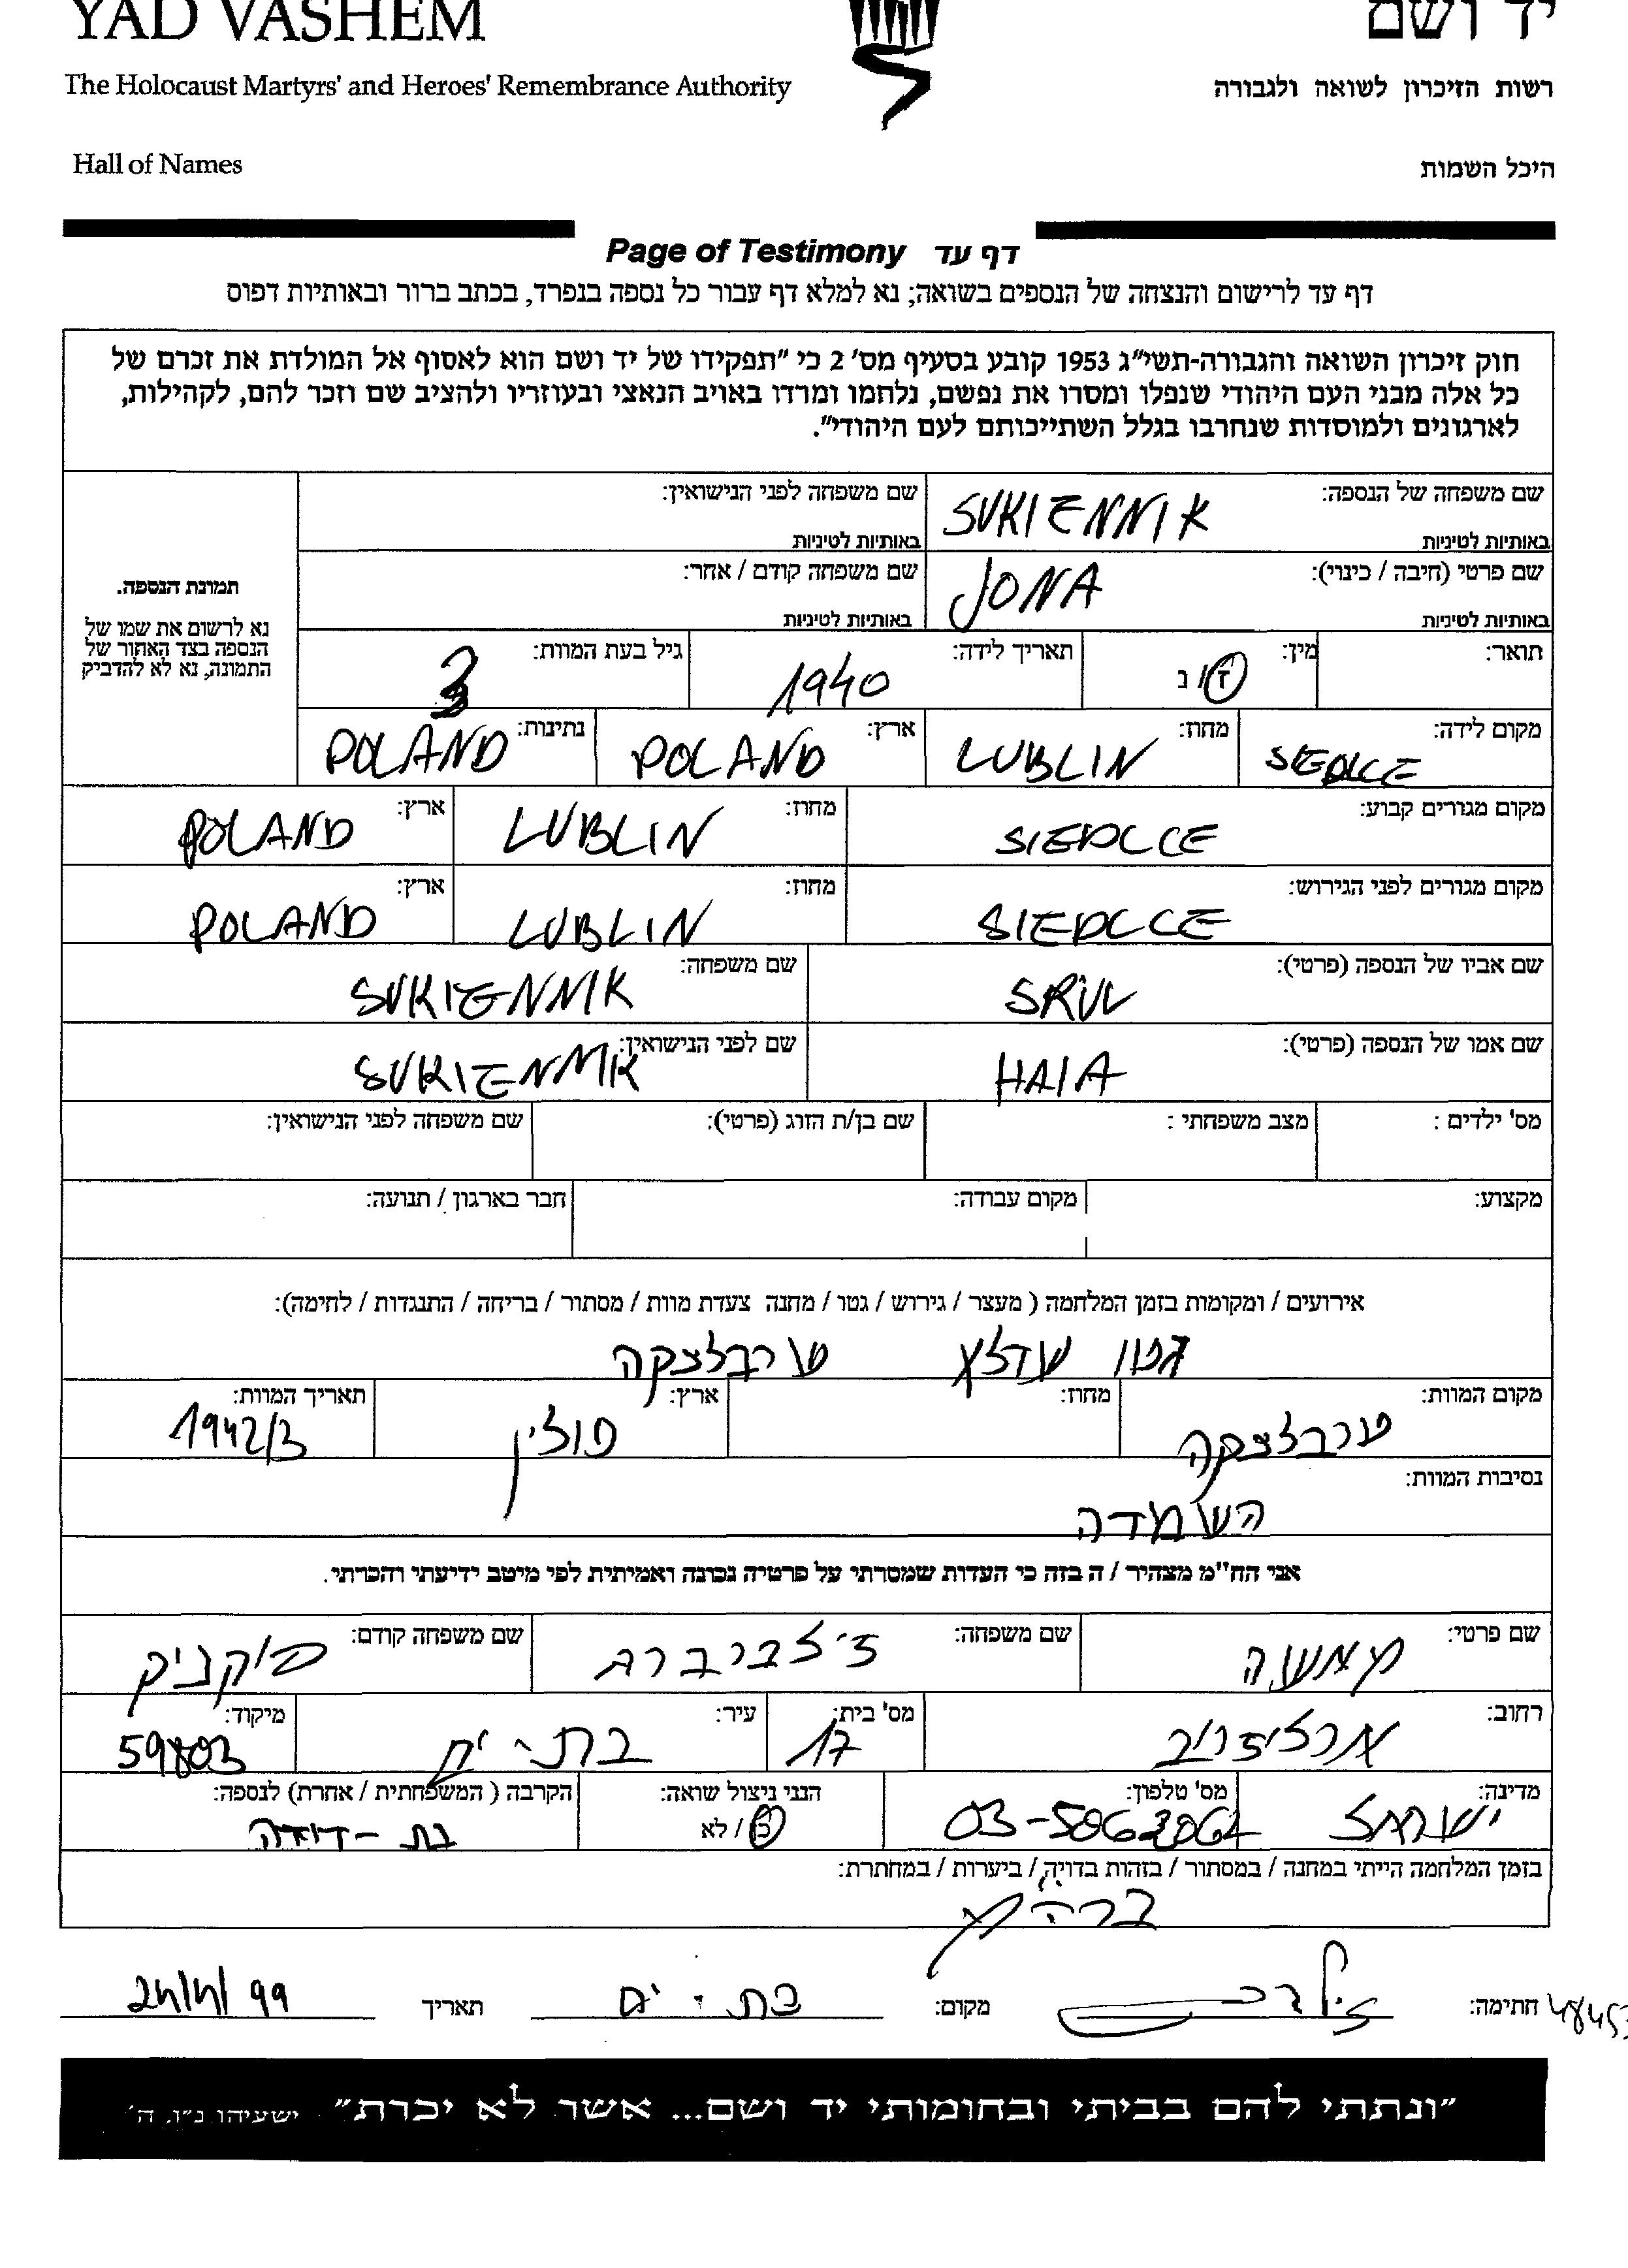 YAD VASHEM יד ושם
The Holocaust Martyrs' and Heroes' Remembrance Authority רשות הזיכרון לשואה ולגבורה
Hall of Names היכל השמות
Page of Testimony דף עד
דף עד לרישום והנצחה של הנספים בשואה; נא למלא דף עבור כל נספה בנפרד, בכתב ברור ובאותיות דפוס
חוק זיכרון השואה והגבורה-תשי"ג 1953 קובע בסעיף מס' 2 כי "תפקידו של יד ושם הוא לאסוף אל המולדת את זכרם של
כל אלה מבני העם היהודי שנפלו ומסרו את נפשם, נלחמו ומרדו באויב הנאצי ובעוזריו ולהציב שם וזכר להם, לקהילות,
לארגונים ולמוסדות שנחרבו בגלל השתייכותם לעם היהודי".
שם משפחה של הנספה: SUKIENNIK שם משפחה לפני הנישואין:
באותיות לטיניות באותיות לטיניות
שם פרטי (חיבה / כינוי): JONA שם משפחה קודם / אחר:
באותיות לטיניות באותיות לטיניות
תמונת הנספה.
נא לרשום את שמו של
הנספה בצד האחור של
התמונה, נא לא להדביק
תואר: מין: ז / נ תאריך לידה: 1940 גיל בעת המוות: 3
מקום לידה: SIEDLCE מחוז: LUBLIN ארץ: POLAND נתינות: POLAND
מקום מגורים קבוע: SIEDLCE מחוז: LUBLIN ארץ: POLAND
מקום מגורים לפני הגירוש: SIEDLCE מחוז: LUBLIN ארץ: POLAND
שם אביו של הנספה (פרטי): SRUL שם משפחה: SUKIENNIK
שם אמו של הנספה (פרטי): HAIA שם לפני הנישואין: SUKIENNIK
מס' ילדים : מצב משפחתי : שם בן/ת הזוג (פרטי): שם משפחה לפני הנישואין:
מקצוע: מקום עבודה: חבר בארגון / תנועה:
אירועים / ומקומות בזמן המלחמה ( מעצר / גירוש / גטו / מחנה צעדת מוות / מסתור / בריחה / התנגדות / לחימה):
גטו שדלץ טרבלינקה
מקום המוות: טרבלינקה מחוז: ארץ: פולין תאריך המוות: 1942/3
נסיבות המוות:
השמדה
אני הח"מ מצהיר / ה בזה כי העדות שמסרתי על פרטיה נכונה ואמיתית לפי מיטב ידיעתי והכרתי.
שם פרטי: שם משפחה: זילברברג שם משפחה קודם: סוקניק
רחוב: ארלוזרוב מס' בית: 17 עיר: בת-ים מיקוד: 59803
מדינה: ישראל מס' טלפון: 03-5063062 הנני ניצול שואה: כן / לא הקרבה ( המשפחתית / אחרת) לנספה: בת-דודה
בזמן המלחמה הייתי במחנה / במסתור / בזהות בדויה / ביערות / במחתרת:
חתימה: מקום: בת-ים תאריך
"ונתתי להם בביתי ובחומותי יד ושם... אשר לא יכרת" ישעיהו נ"ו, ה'